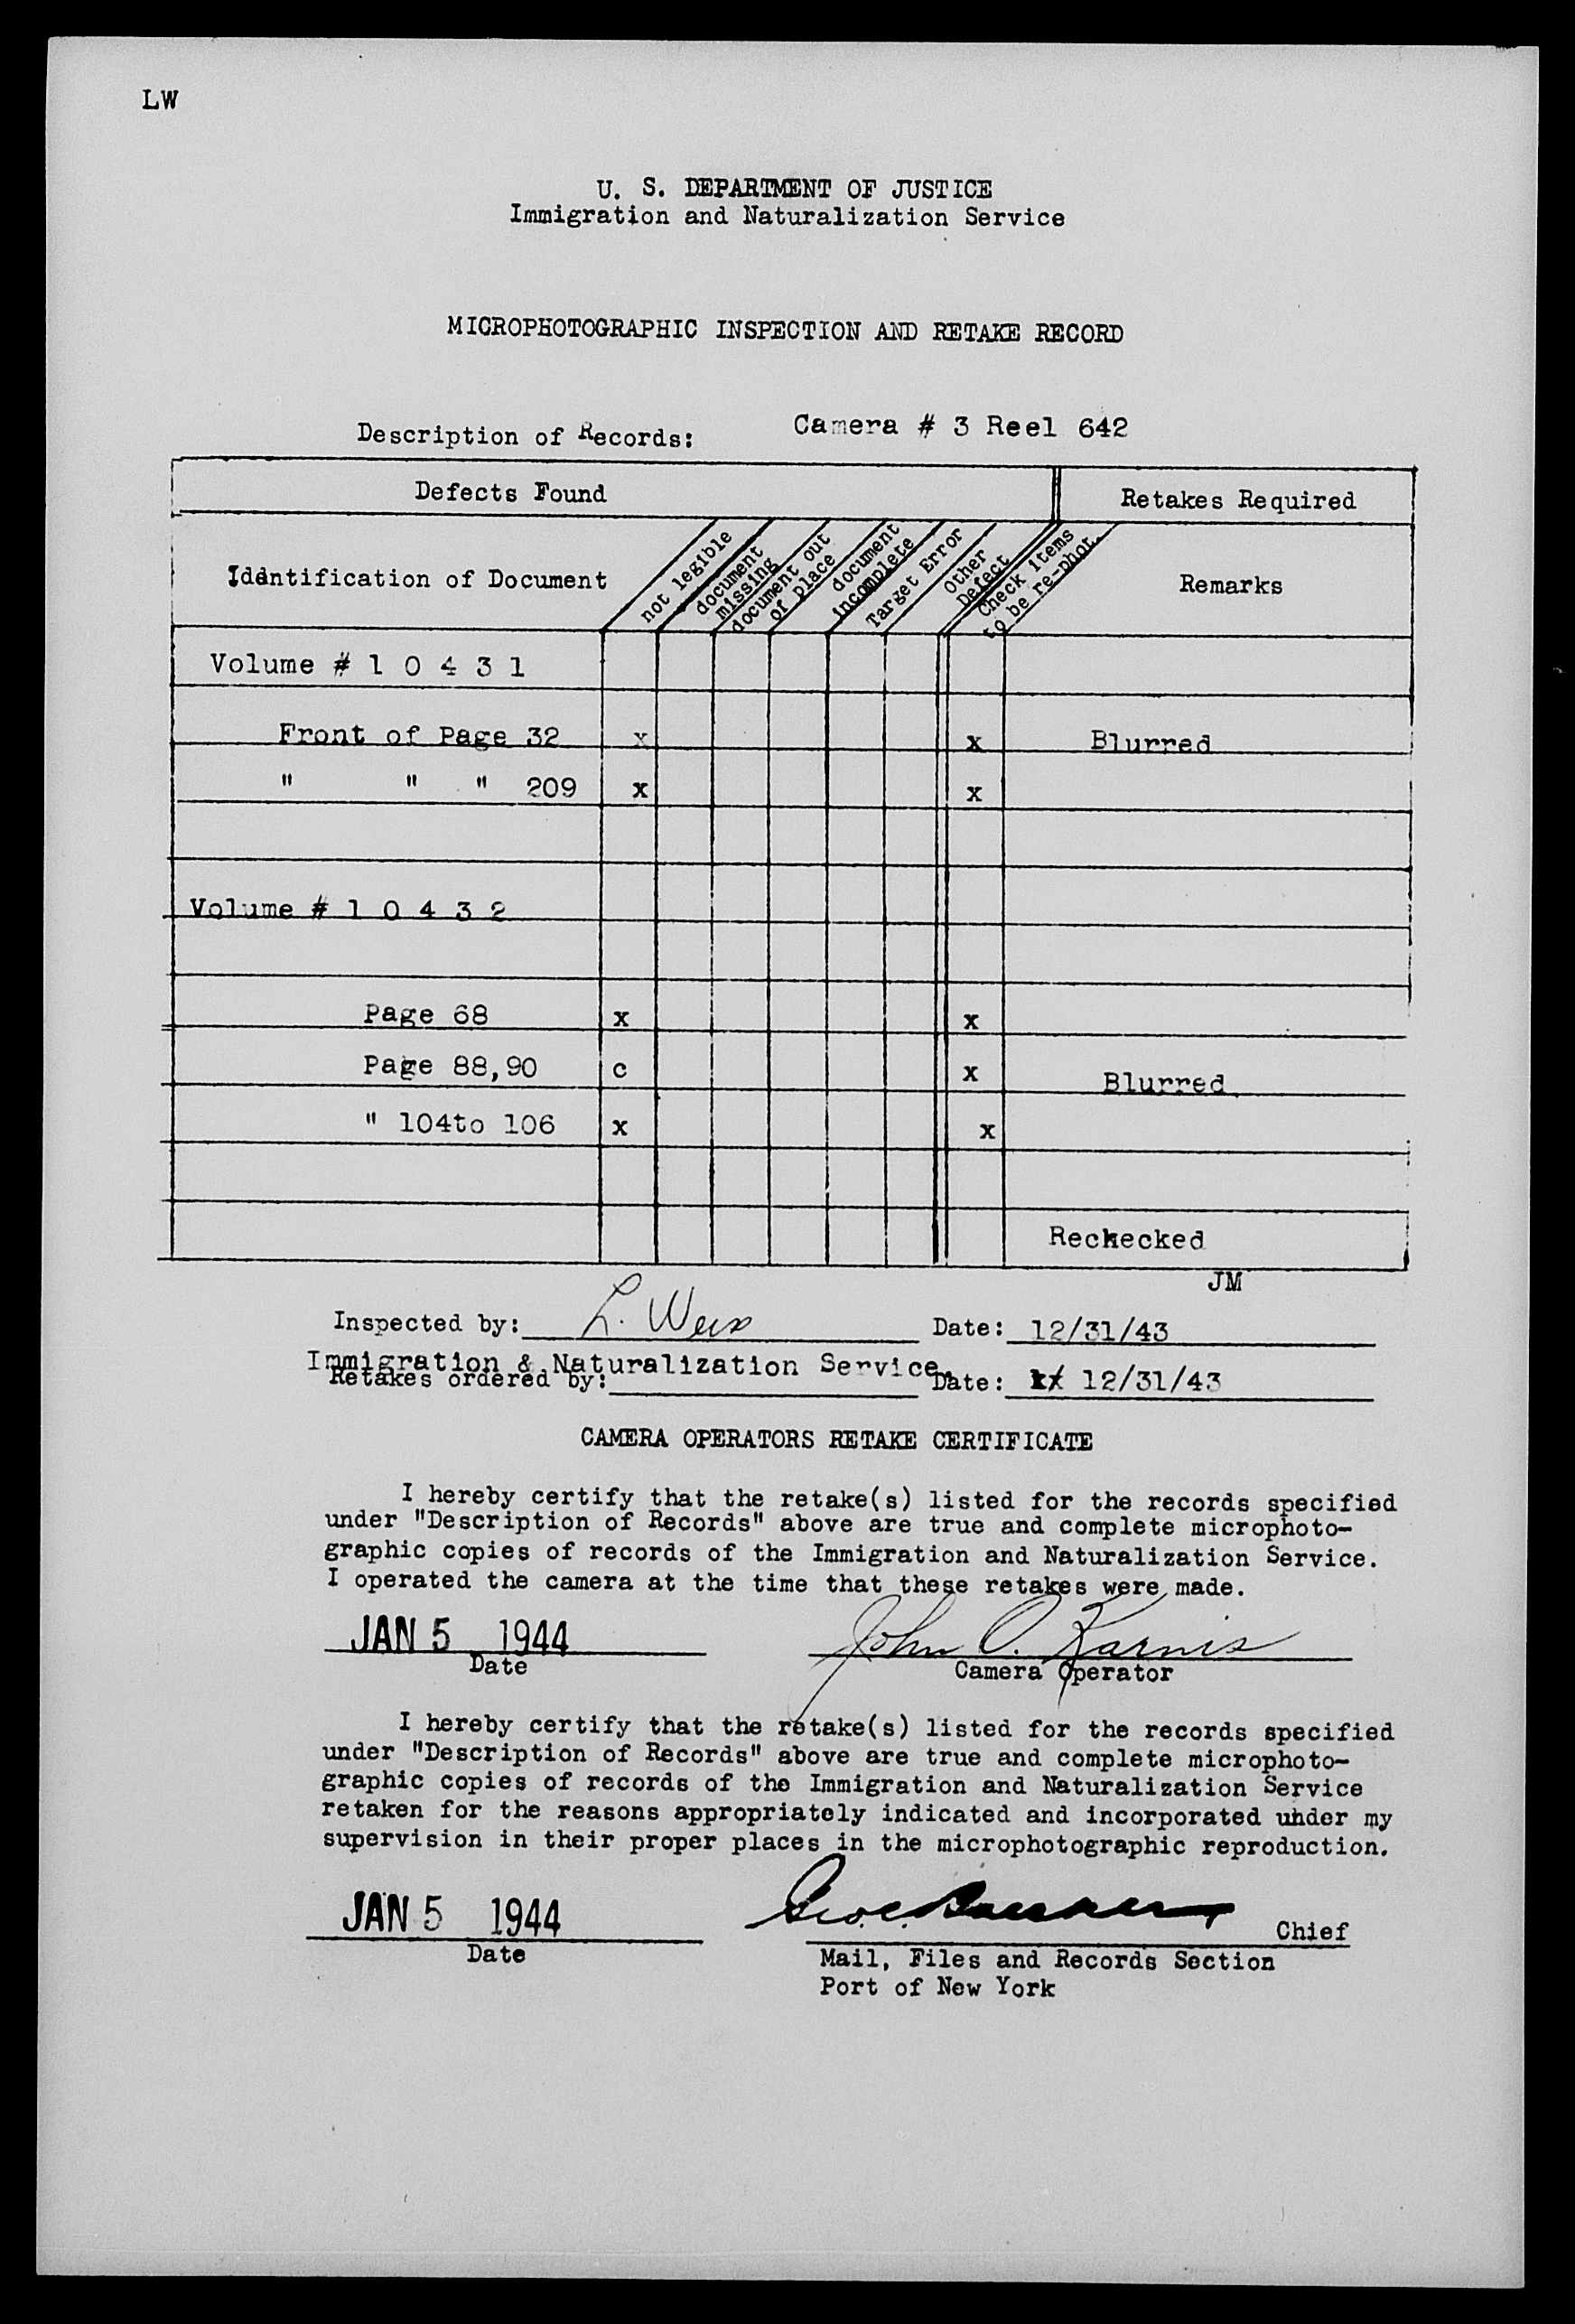 LW
U. S. DEPARTMENT OF JUSTICE
Immigration and Naturalization Service
MICROPHOTOGRAPHIC INSPECTION AND RETAKE RECORD
Description of Records: Camera # 3 Reel 642
Defects Found Retakes Required
Iddntification of Document not legible document missing document out of place document incomplete Target Error Other Defect Check items to be re-phot. Remarks
Volume # 1 0 4 3 1
Front of Page 32 x x Blurred
" " " 209 x x
Volume # 1 0 4 3 2
Page 68 x x
Page 88,90 c x Blurred
" 104to 106 x x
Rechecked
JM
Inspected by: L. Weis Date: 12/31/43
Immigration & Naturalization Service.
Retakes ordered by: Date: 12/31/43
CAMERA OPERATORS RETAKE CERTIFICATE
I hereby certify that the retake(s) listed for the records specified
under "Description of Records" above are true and complete microphoto-
graphic copies of records of the Immigration and Naturalization Service.
I operated the camera at the time that these retakes were made.
JAN 5 1944 John O. Karnis
Date Camera Operator
I hereby certify that the retake(s) listed for the records specified
under "Description of Records" above are true and complete microphoto-
graphic copies of records of the Immigration and Naturalization Service
retaken for the reasons appropriately indicated and incorporated under my
supervision in their proper places in the microphotographic reproduction.
JAN 5 1944 Chief
Date Mail, Files and Records Section
Port of New York